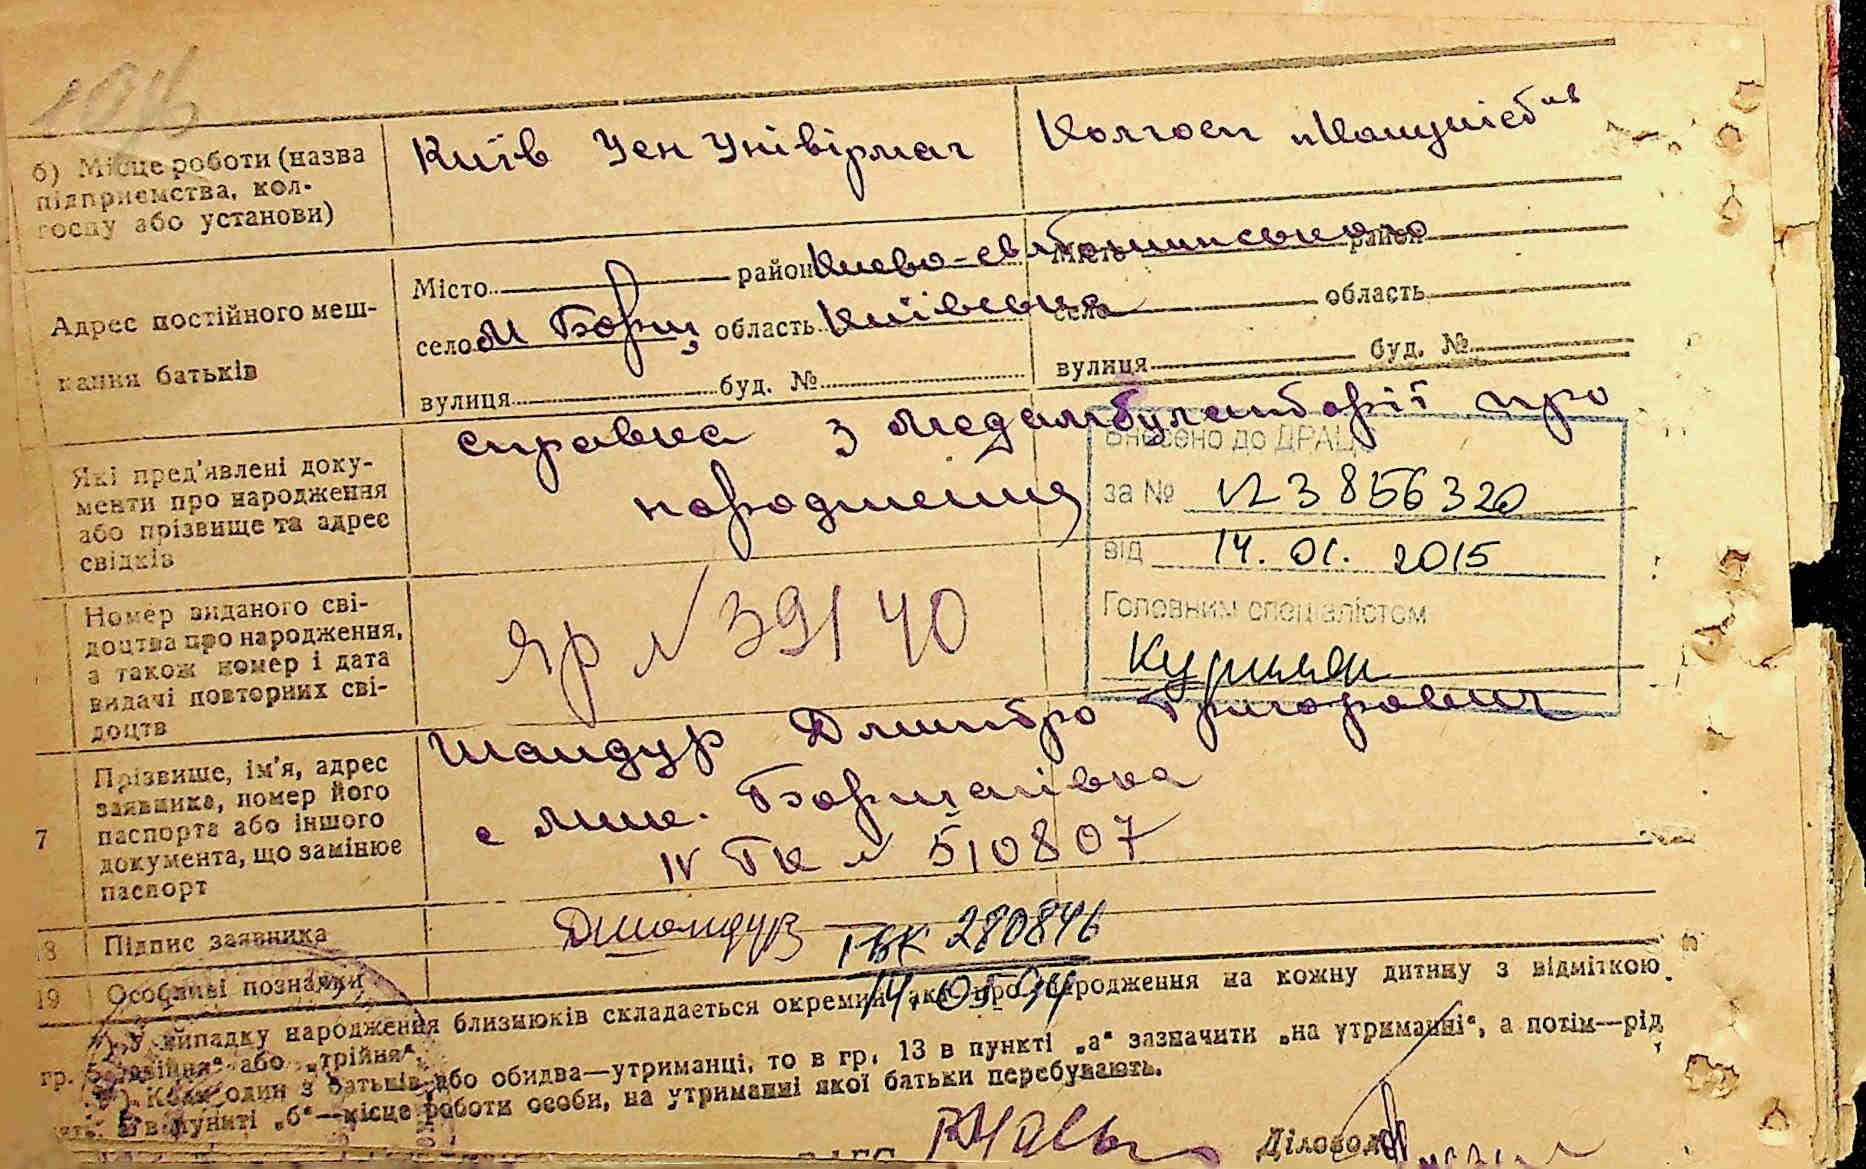 б) Місце роботи (назва
підприємства, кол-
госпу або установи)
Київ Цен Універмаг
Колгосп
Адрес постійного меш-
кання батьків
Місто район Києво-Святошинського
село М Борщ, область Київська
вулиця буд. №
Місто район
село область
вулиця буд. №
Які пред'явлені доку-
менти про народження
або прізвище та адрес
свідків
справка з медамбулаторії про
народження
Внесено до ДРАЦС
за № 123856320
від 14.01.2015
Головним спеціалістом
Номер виданого сві-
доцтва про народження,
а також номер і дата
видачі повторних сві-
доцтв
ЯР № 39140
7
Прізвище, ім'я, адрес
заявника, номер його
паспорта або іншого
документа, що замінює
паспорт
Шандур Дмитро Григорович
с Мик. Борщагівка
IV ТК № 510807
18 Підпис заявника
ДШандур
ГБК 280846
14.05.94
19 Особливі позначки
У випадку народження близнюків складається окремий акт про народження на кожну дитину з відміткою
гр. 5 „двійня“ або „трійня“.
Коли один з батьків або обидва—утриманці, то в гр. 13 в пункті „а“ зазначити „на утриманні“, а потім—рід
а в пункті „б“—місце роботи особи, на утриманні якої батьки перебувають.
Діловод